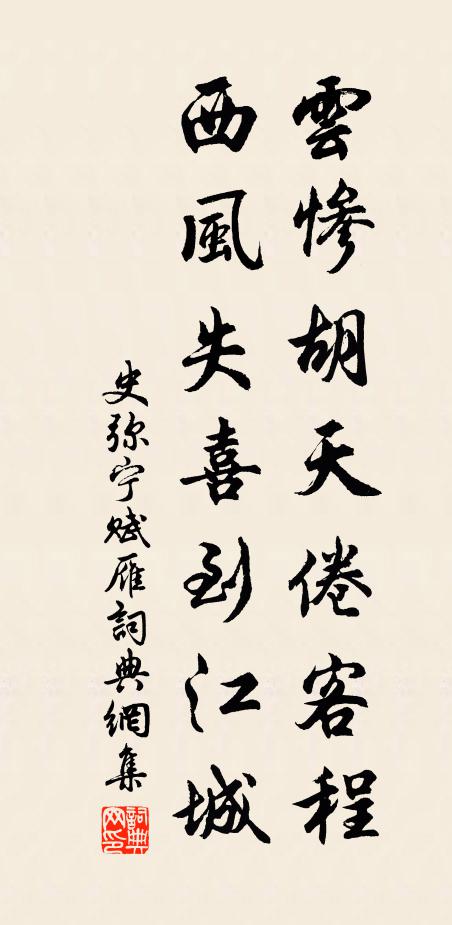 雲慘胡天倦客程
西風失喜到江城
史弥宁賦雁詞典網集
詞典网印